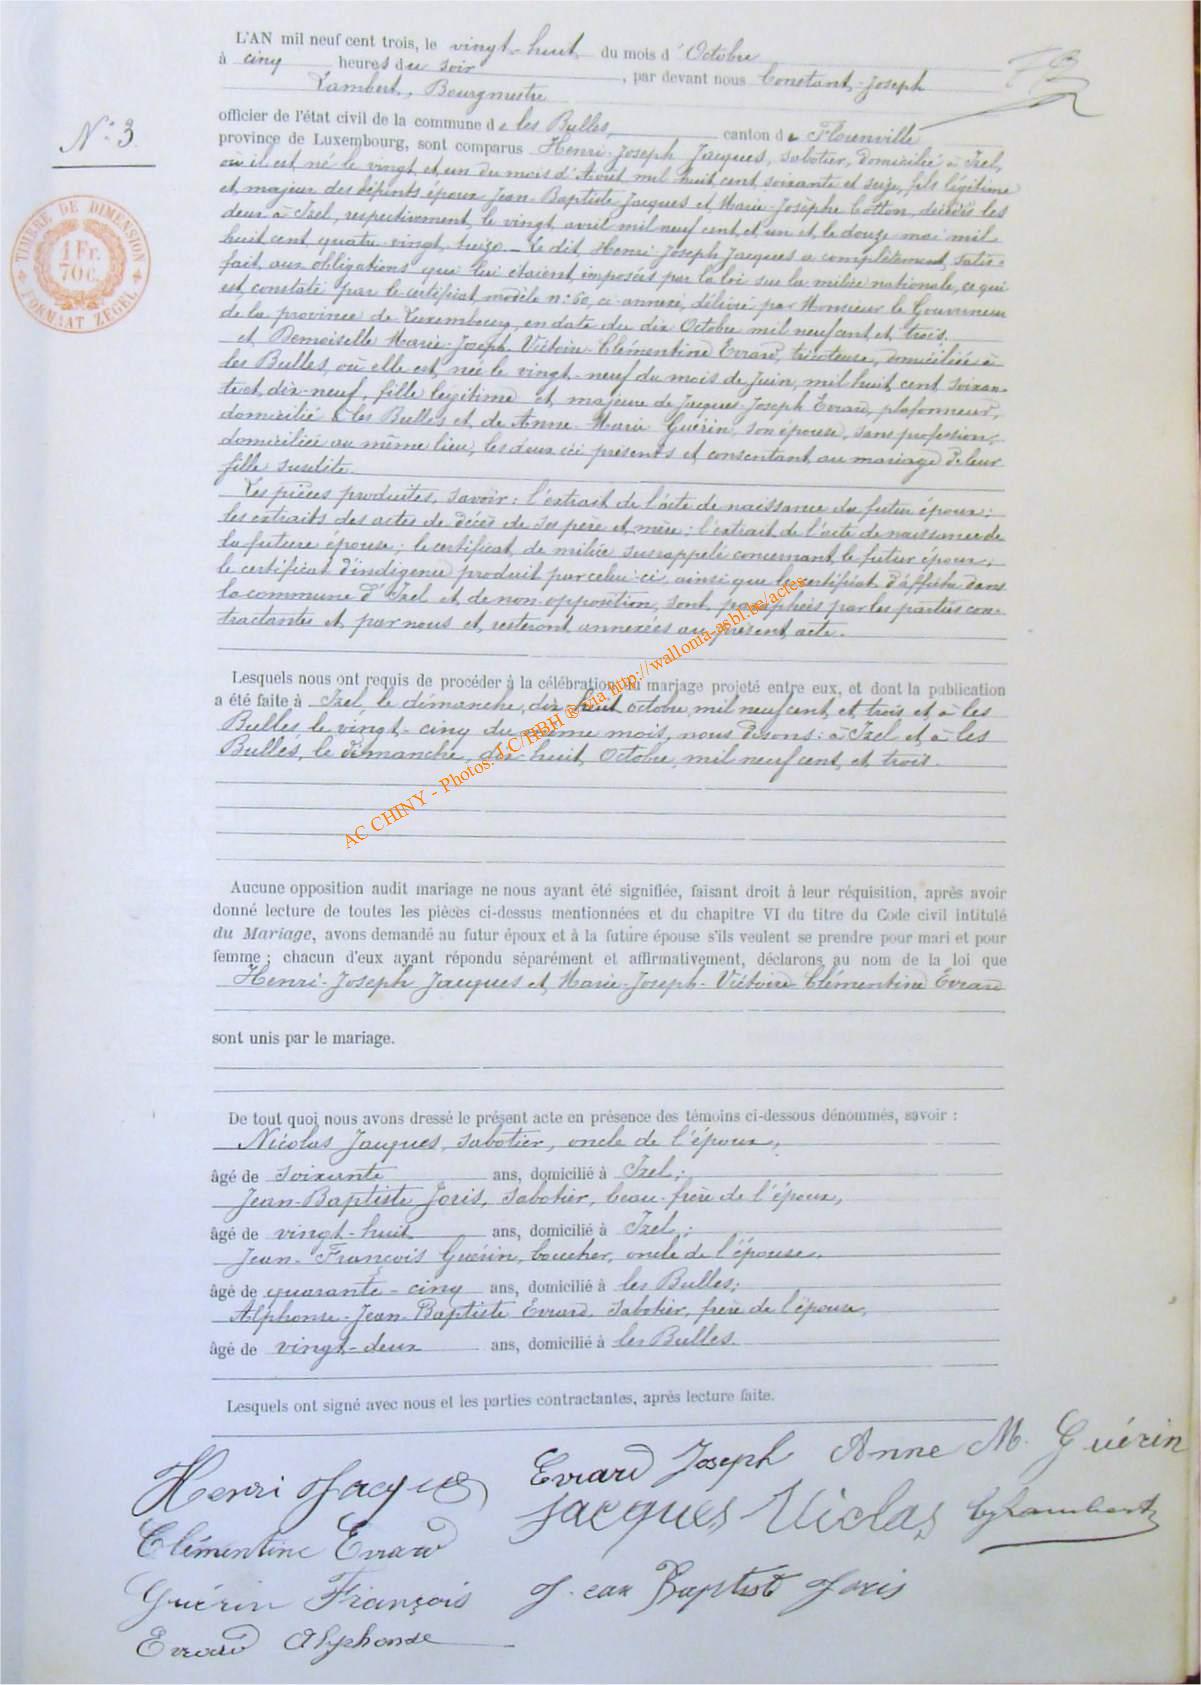 L'AN mil neuf cent trois, le vingt-huit du mois d'Octobre
à cinq heures du soir, par devant nous Constant-Joseph
Lambert, Bourgmestre
officier de l'état civil de la commune de les Bulles, canton de Florenville
N° 3
province de Luxembourg, sont comparus Henri-Joseph Jacques, sabotier, domicilié à Izel,
où il est né le vingt et un du mois d'Août mil huit cent soixante et seize, fils légitime
et majeur des défunts époux Jean-Baptiste Jacques et Marie-Josèphe Cotton, décédés les
deux à Izel, respectivement le vingt avril mil neuf cent et un et le douze mai mil
huit cent quatre-vingt-treize. Le dit Henri-Joseph Jacques a complètement satis-
fait aux obligations qui lui étaient imposées par la loi sur la milice nationale, ce qui
est constaté par le certificat modèle n° 60, ci-annexé, délivré par Monsieur le Gouverneur
de la province de Luxembourg, en date du dix Octobre mil neuf cent et trois.
et Demoiselle Marie-Joseph-Victoire-Clémentine Evrard, tricoteuse, domiciliée à
les Bulles, où elle est née le vingt-neuf du mois de Juin, mil huit cent soixan-
te et dix-neuf, fille légitime et majeure de Jacques-Joseph Evrard, plafonneur,
domicilié à les Bulles et de Anne-Marie Guérin, son épouse, sans profession,
domiciliée au même lieu, les deux ici présents et consentant au mariage de leur
fille susdite.
Les pièces produites, savoir: l'extrait de l'acte de naissance du futur époux;
les extraits des actes de décès de ses père et mère; l'extrait de l'acte de naissance de
la future épouse; le certificat de milice susrappelé concernant le futur époux;
le certificat d'indigence produit par celui-ci ainsi que le certificat d'affiche dans
la commune d'Izel et de non-opposition, sont paraphées par les parties con-
tractantes et par nous et resteront annexées au présent acte.
TIMBRE DE DIMENSION
1 Fr.
70 c.
FORMAAT ZEGEL
Lesquels nous ont requis de procéder à la célébration du mariage projeté entre eux, et dont la publication
a été faite à Izel, le dimanche, dix huit octobre, mil neuf cent et trois et à les
Bulles, le vingt-cinq du même mois, nous disons: à Izel et à les
Bulles, le dimanche, dix huit, Octobre, mil neuf cent et trois.
AC CHINY - Photos: J.C/HBH ® via http://wallonia-asbl.be/actes
Aucune opposition audit mariage ne nous ayant été signifiée, faisant droit à leur réquisition, après avoir
donné lecture de toutes les pièces ci-dessus mentionnées et du chapitre VI du titre du Code civil intitulé
du Mariage, avons demandé au futur époux et à la future épouse s'ils veulent se prendre pour mari et pour
femme; chacun d'eux ayant répondu séparément et affirmativement, déclarons au nom de la loi que
Henri-Joseph Jacques et Marie-Joseph-Victoire-Clémentine Evrard
sont unis par le mariage.
De tout quoi nous avons dressé le présent acte en présence des témoins ci-dessous dénommés, savoir :
Nicolas Jacques, sabotier, oncle de l'époux,
âgé de soixante ans, domicilié à Izel;
Jean-Baptiste Joris, sabotier, beau-frère de l'époux,
âgé de vingt-huit ans, domicilié à Izel;
Jean-François Guérin, boucher, oncle de l'épouse,
âgé de quarante-cinq ans, domicilié à les Bulles;
Alphonse-Jean-Baptiste Evrard, sabotier, frère de l'épouse,
âgé de vingt-deux ans, domicilié à les Bulles.
Lesquels ont signé avec nous et les parties contractantes, après lecture faite.
Henri Jacques Evrard Joseph Anne M. Guérin
Jacques Nicolas CJ Lambert
Clémentine Evrard
Guérin François Jean Baptiste Joris
Evrard Alphonse